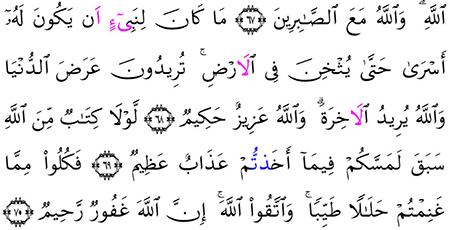 اللَّهِ ۗ وَاللَّهُ مَعَ الصَّـٰبِرِينَ ﴿٦٧﴾ مَا كَانَ لِنَبِىٓءٍ اَن يَكُونَ لَهُۥٓ
أَسْرَىٰ حَتَّىٰ يُثْخِنَ فِى الَارْضِ ۚ تُرِيدُونَ عَرَضَ الدُّنْيَا
وَاللَّهُ يُرِيدُ الَاخِرَةَ ۗ وَاللَّهُ عَزِيزٌ حَكِيمٌ ﴿٦٨﴾ لَّوْلَا كِتَـٰبٌ مِّنَ اللَّهِ
سَبَقَ لَمَسَّكُمْ فِيمَآ أَخَذتُّمْ عَذَابٌ عَظِيمٌ ﴿٦٩﴾ فَكُلُوا۟ مِمَّا
غَنِمْتُمْ حَلَـٰلًا طَيِّبًا ۚ وَاتَّقُوا۟ اللَّهَ ۚ إِنَّ اللَّهَ غَفُورٌ رَّحِيمٌ ﴿٧٠﴾